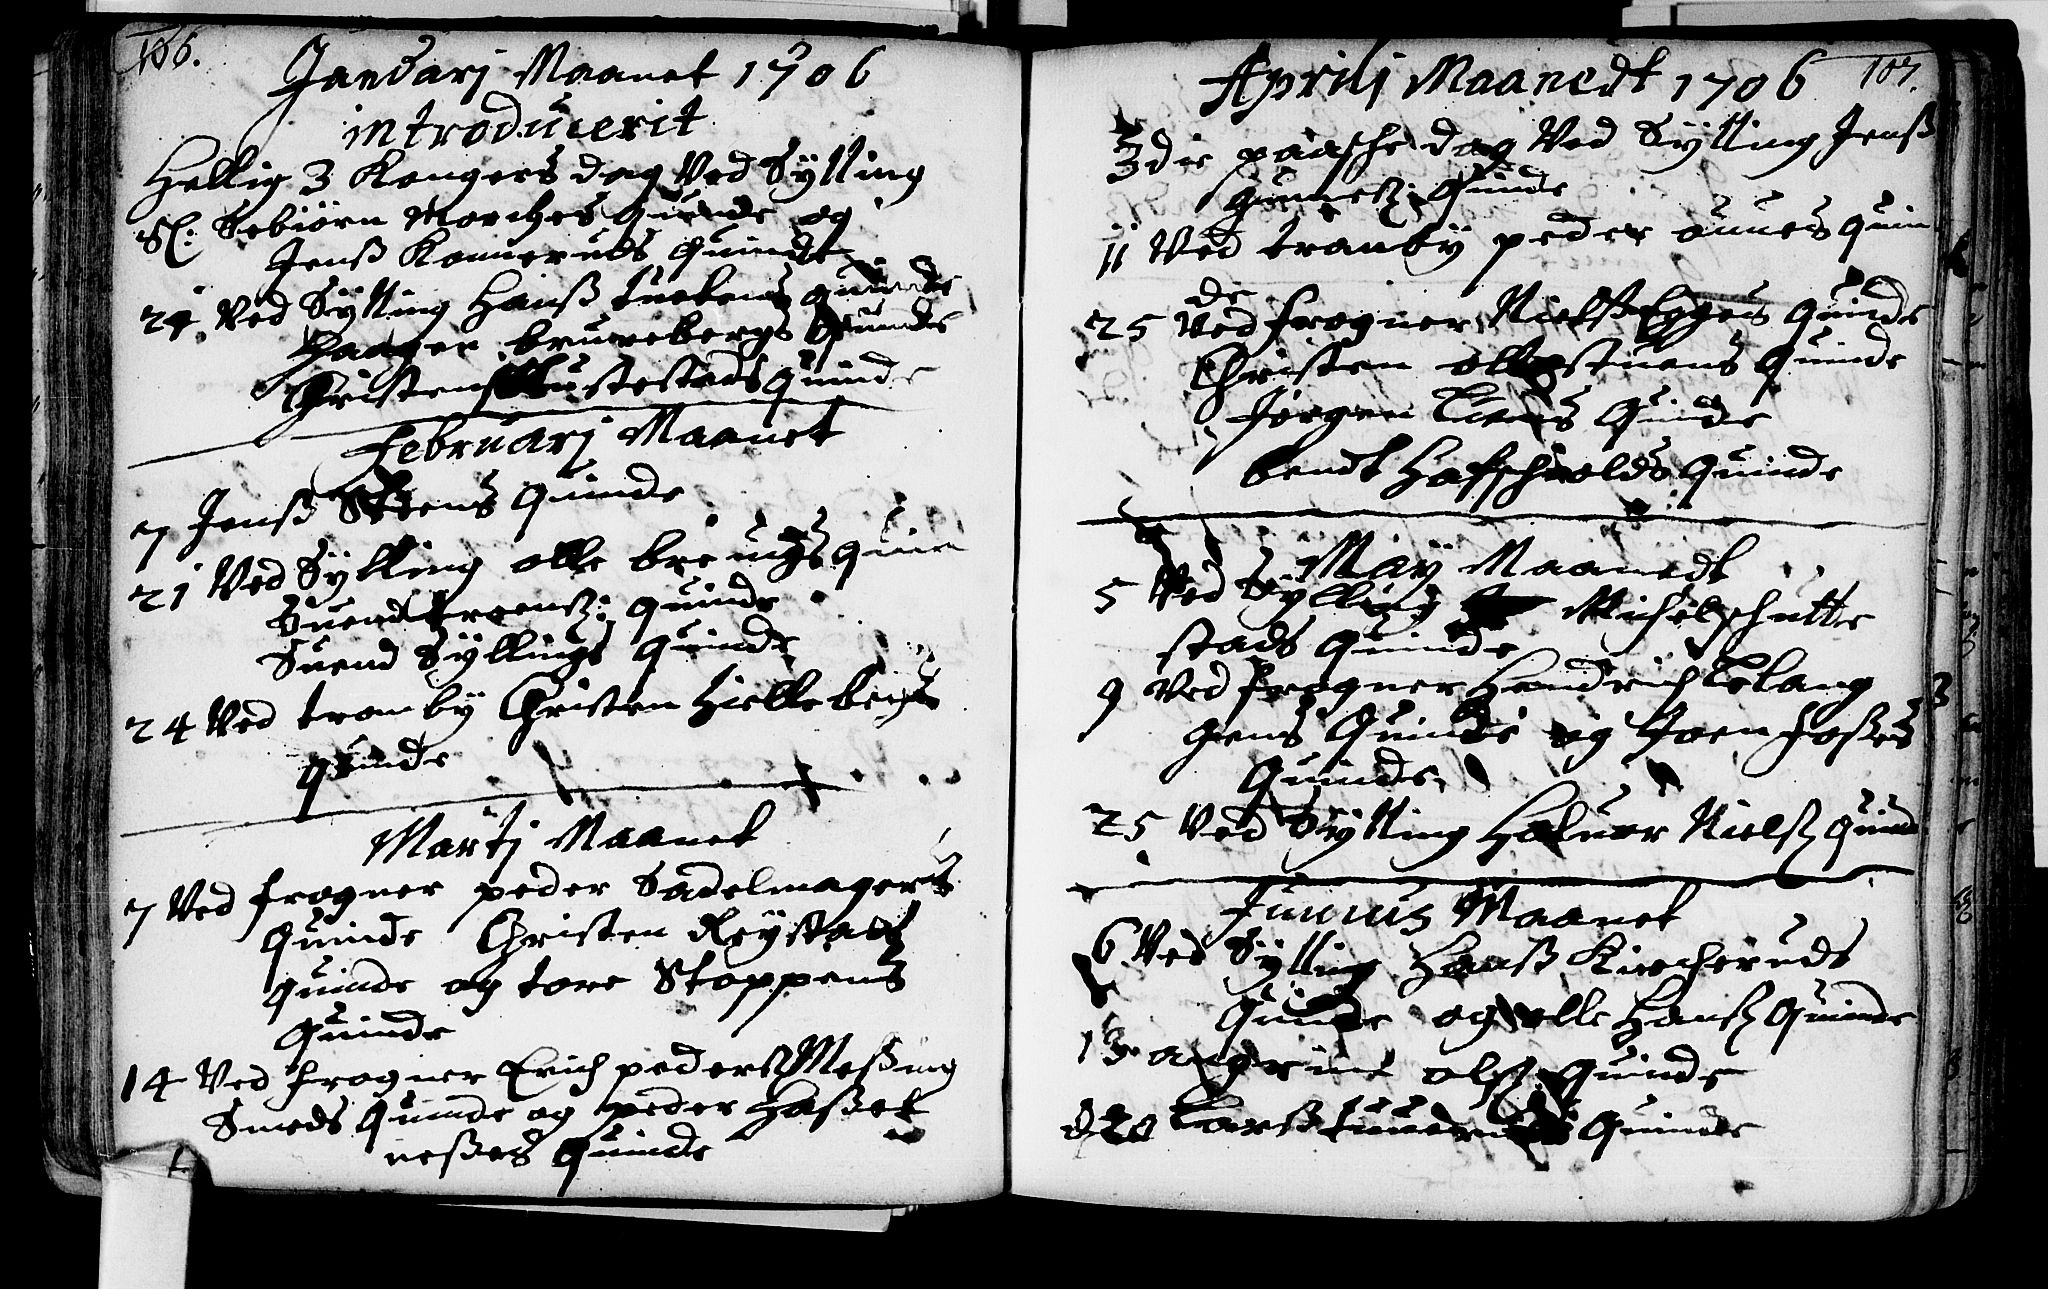 106.
Januarj Maanet 1706
introducerit
Hellig 3 Kongers dag Ved Sÿlling
Sl: Torbiörn Morches quinde og
Jenß Konneruds quinde
24. Ved Sÿlling Hanß quinde
Haagen brunebergs quinde
Christen stads quinde
Februarj Maanet
7 Jenß quinde
21 Ved Sÿlling olle quin
Suend quinde
Suend Sÿllings quinde
24 Ved tranbÿ Christen Hellebergs
quinde
Martj Maanet
7 Ved frogner peder Sadelmagers
quinde Christen Reÿstad
quinde og tore Stoppens
quinde
14 Ved frogner Erich peders Meßing
Smeds quinde og peder Haßel
neßes quinde
107.
Aprilj Maanedt 1706
3die paasche dag Ved Sÿlling Jenß
Gunnerß: quinde
11 Ved tranbÿ peder ounes quin
de
25 Ved frogner Nielß Egges quinde
Christen ollestuens quinde
Jörgen Liens quinde
bendt Hafschiolds quinde
Maÿ Maanedt
5 Ved Sÿlling Michel schutte
stads quinde
9 Ved frogner Hendrich Lelang
gens quinde og Joen foßes
quinde
25 Ved Sÿlling Haluor Nielß quind
Junius Maanet
6 Ved Sÿlling Hanß Kircheruds
quinde og olle Hanß quinde
13 olß: quinde
20 Larß quinde